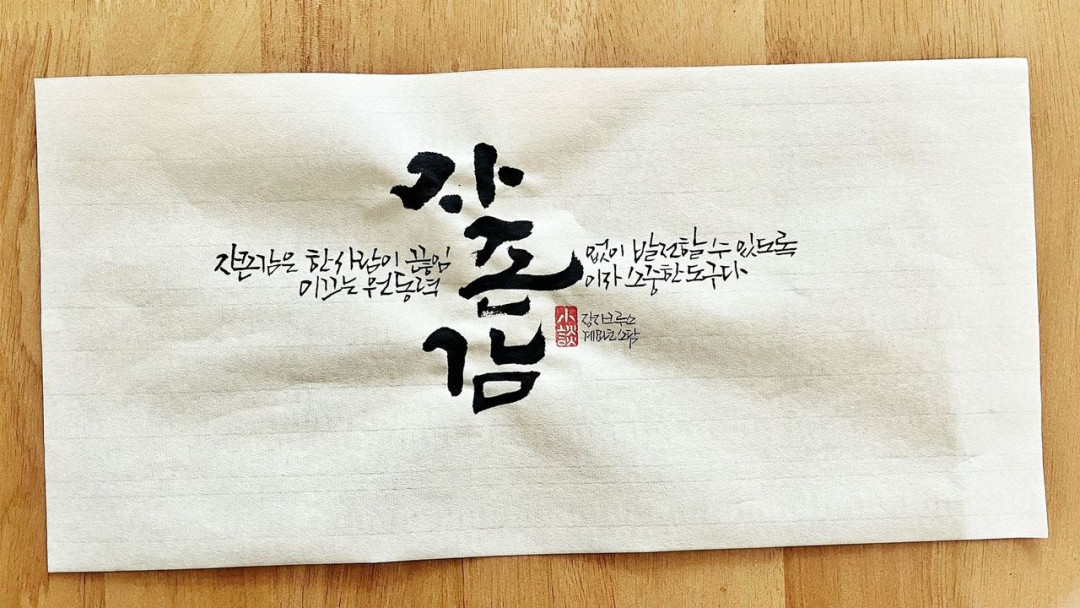 자존감
자존감은 한 사람이 끊임없이 발전할 수 있도록
이끄는 원동력이자 소중한 도구다
小談
계묘년 소담